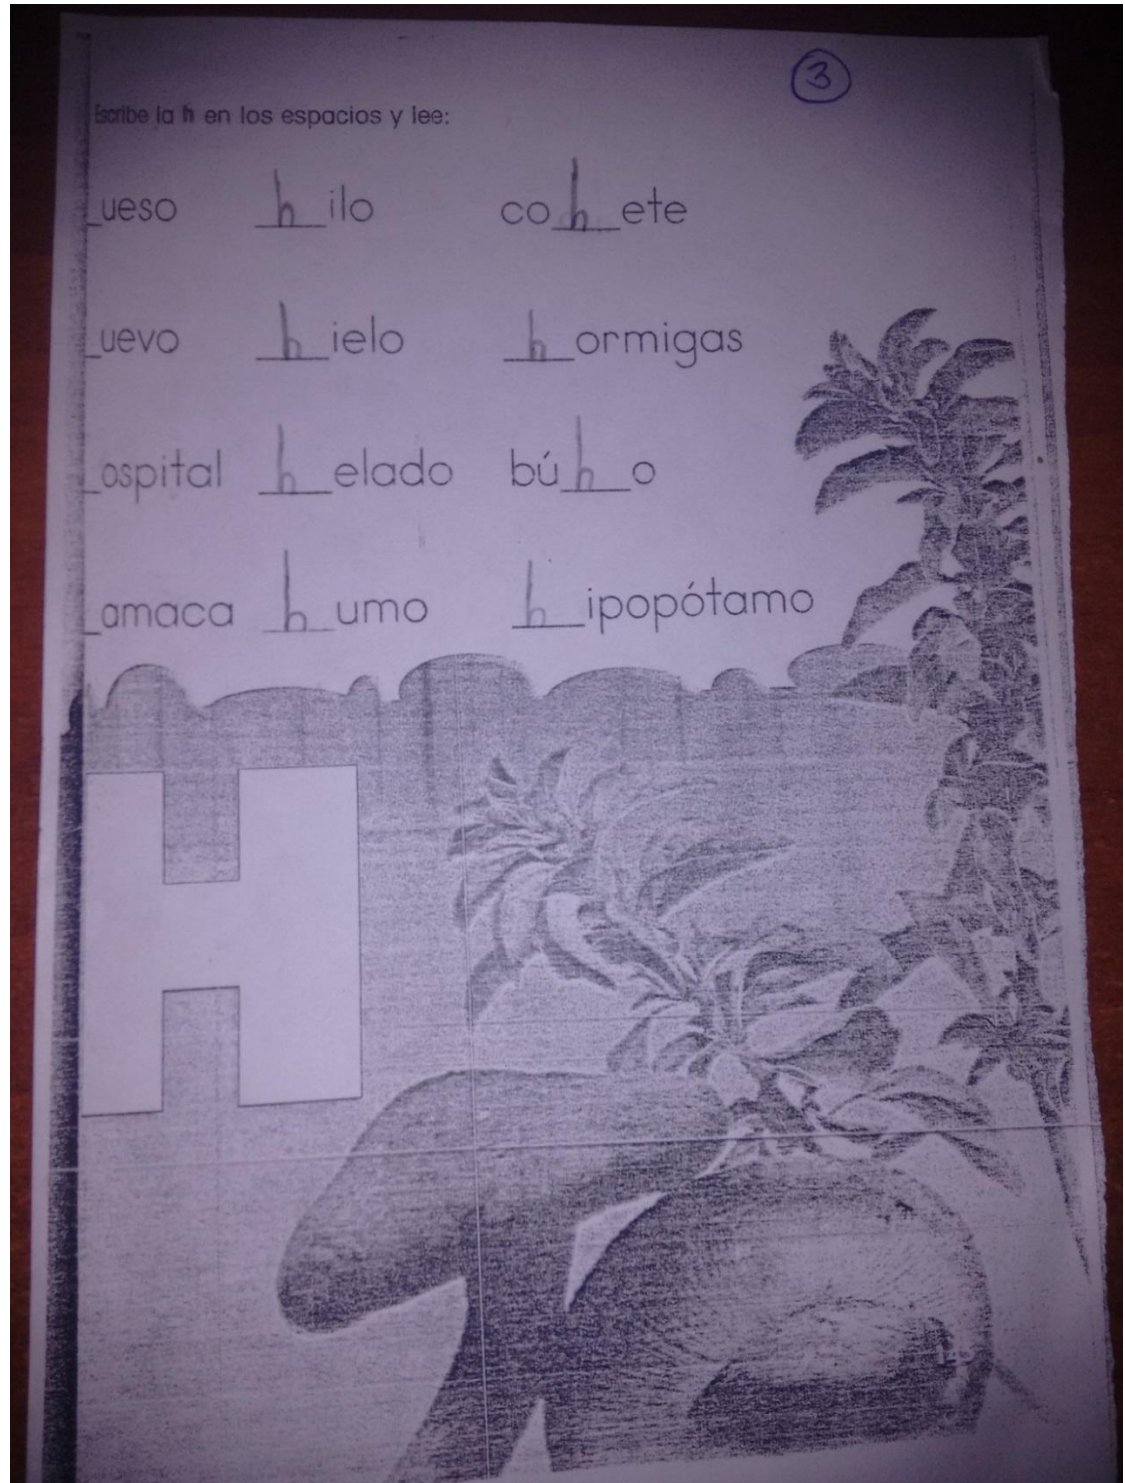 3
Escribe la h en los espacios y lee:
_ueso h ilo co h ete
_uevo h ielo h ormigas
_ospital h elado bú h o
_amaca h umo h ipopótamo
H